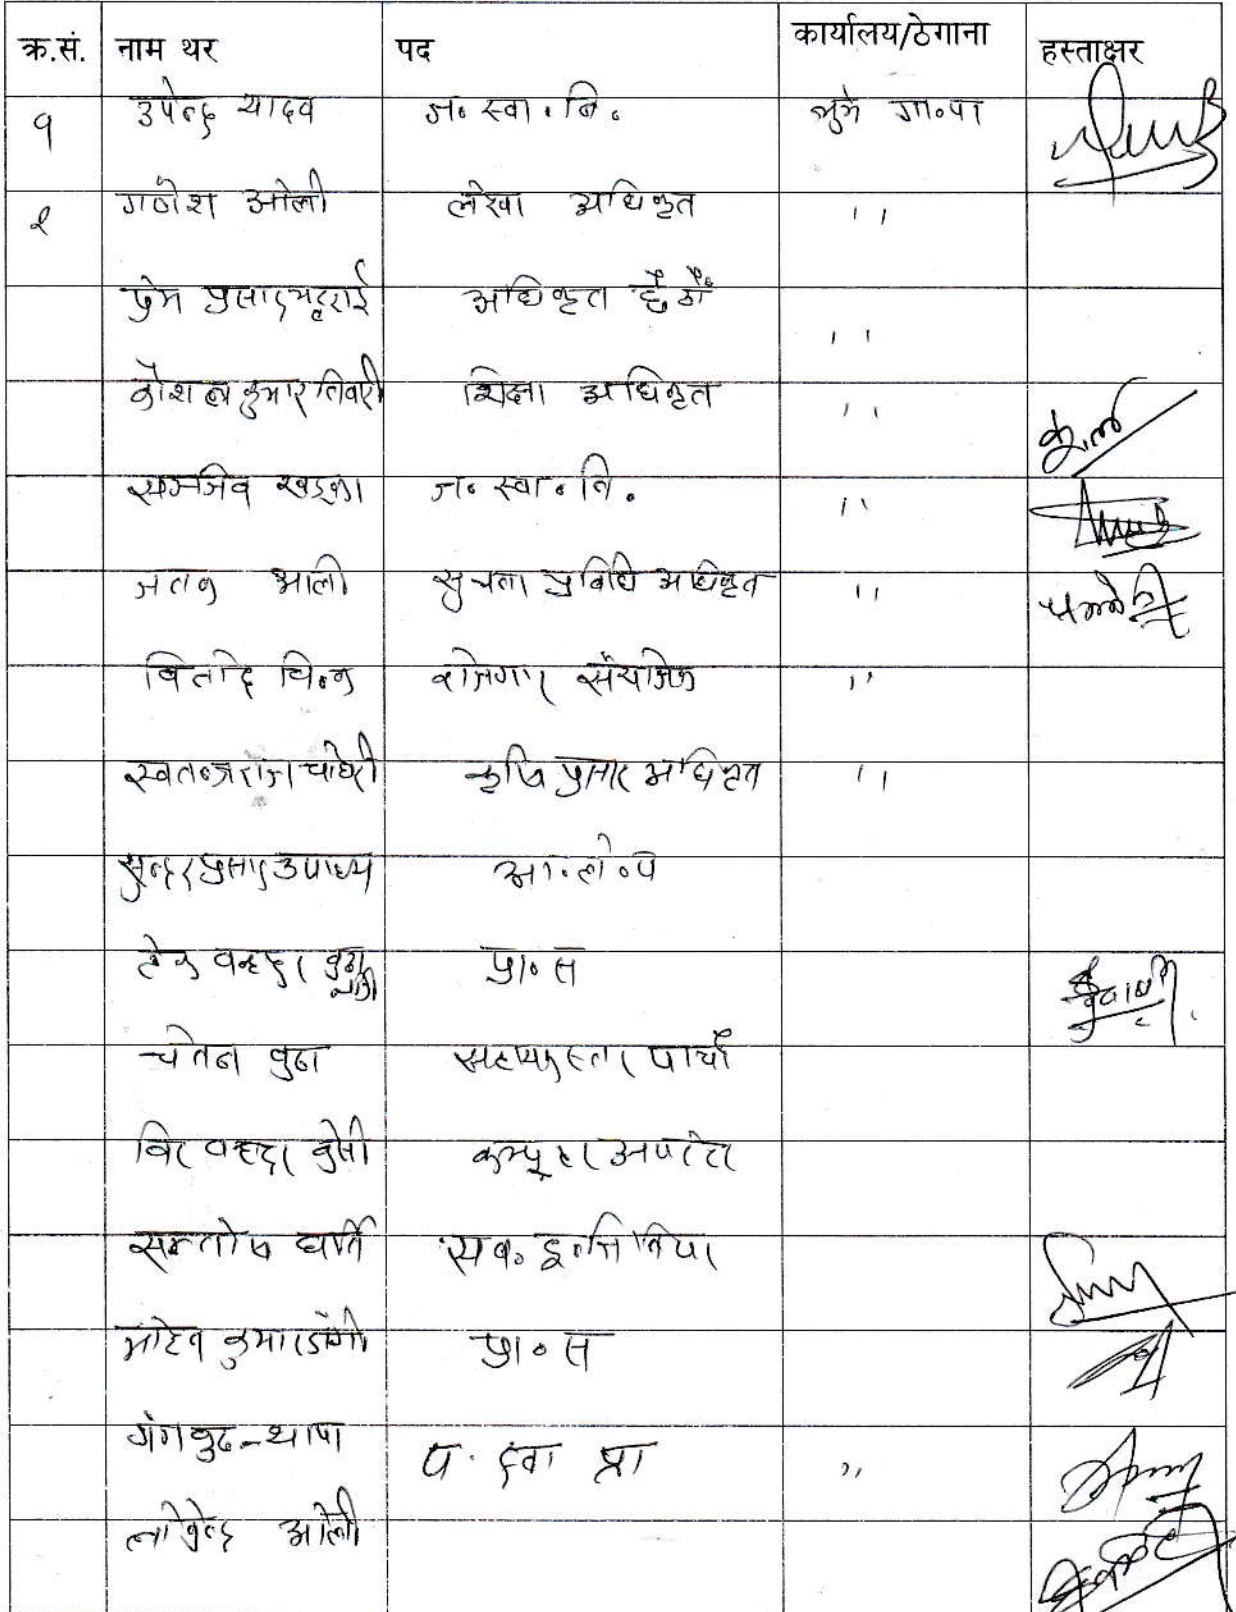 क्र.सं. नाम थर पद कार्यालय/ठेगाना हस्ताक्षर
१ उपेन्द्र यादव ज. स्वा. नि. भुमे गा.पा
२ गणेश ओली लेखा अधिकृत ''
प्रेम प्रसाद भट्टराई अधिकृत छैठौँ ''
कौशल कुमार तिवारी शिक्षा अधिकृत ''
सन्जिव खड्का ज. स्वा. नि. ''
जनक ओली सुचना प्रविधि अधिकृत ''
विनोद वि.क रोजगार संयोजक ''
स्वतन्त्रराज चौधरी कृषि प्रसार अधिकृत ''
सुन्दर प्रसाद उपाध्य आ.ले.प
टेक वहादुर बुढा प्रा.स
चेतन बुढा सहायकस्तर पाचौ
विर वहादुर केसी कम्प्युटर अपरेटर
सन्तोष घर्ति सब. इन्जिनियर
मोहन कुमार डाँगी प्रा.स
गंग बुढा थापा प. स्वा प्रा ''
लोकेन्द्र ओली